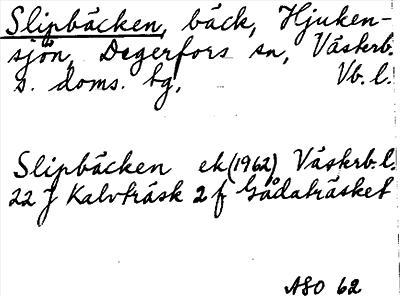 Slipbäcken, bäck, Hjuken-
sjön, Degerfors sn, Västerb.
s. doms. hg, Vb. l.
Slipbäcken ek (1962) Västerb. l.
22 J Kalvträsk 2 f Gådaträsket
ASO 62